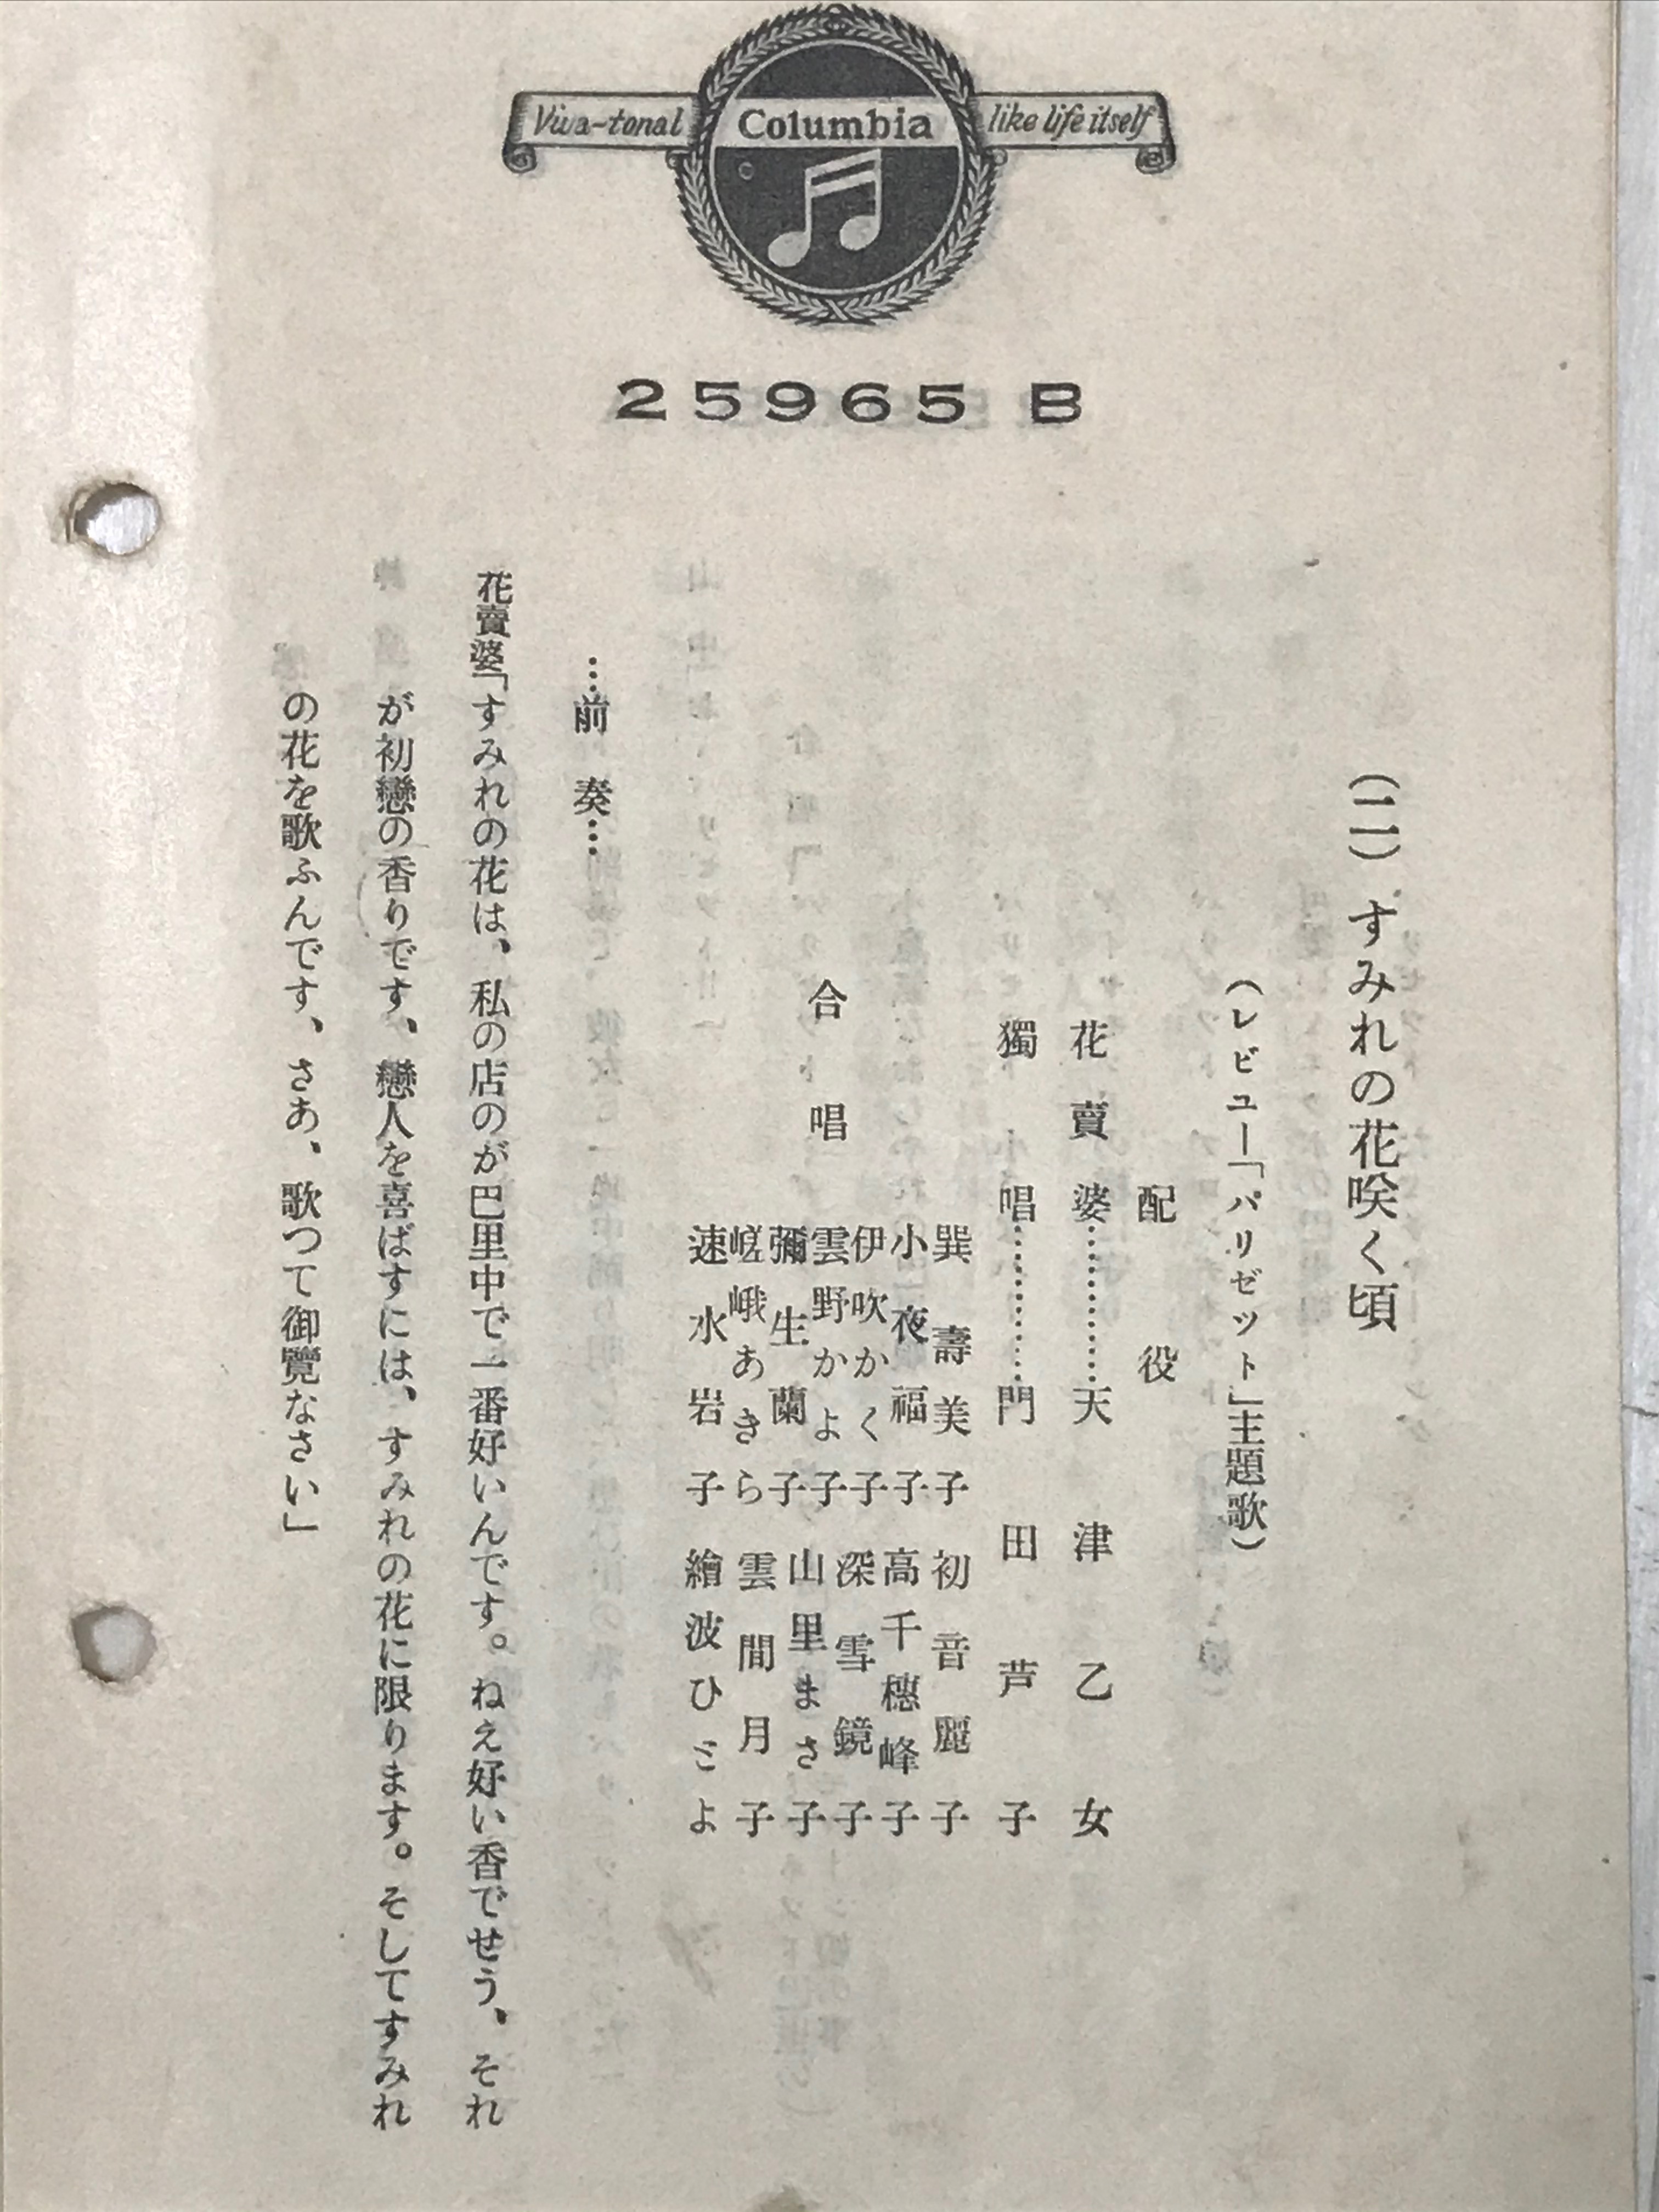 Viva-tonal Columbia like life itself
25965 B
（二）すみれの花咲く頃
（レビユー「パリゼツト」主題歌）
配役
花賣婆…………天津乙女
獨唱…………門田芦子
合唱
巽壽美子 初音麗子
小夜福子 高千穗峰子
伊吹かく子 深雪鏡子
雲野かよ子 山里まさ子
彌生蘭子 雲間月子
嵯峨あきら 繪波ひさよ
速水岩子
…前奏…
花賣婆「すみれの花は、私の店のが巴里中で一番好いんです。ねえ好い香でせう、それ
が初戀の香りです、戀人を喜ばすには、すみれの花に限ります。そしてすみれ
の花を歌ふんです、さあ、歌つて御覽なさい」